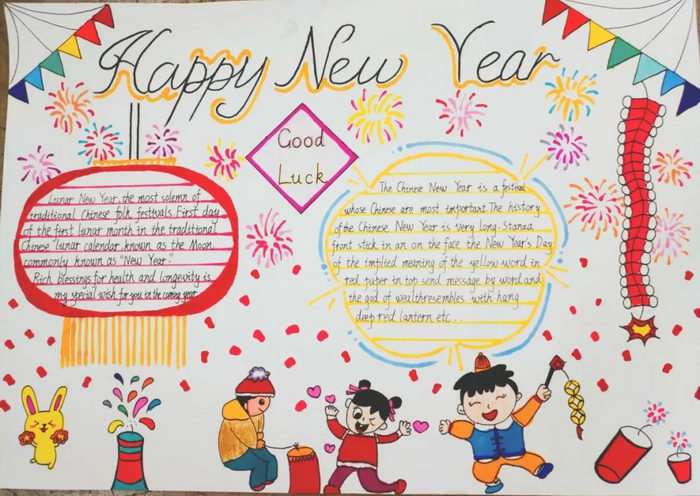 Happy New Year
Good
Luck
Lunar New Year, the most solemn of
traditional Chinese folk festivals. First day
of the first lunar month in the traditional
Chinese lunar calendar, known as the Moon.
commonly known as "New Year."
Rich blessings for health and longevity is
my special wish for you in the coming year.
The Chinese New Year is a festival
whose Chinese are most important. The history
of the Chinese New Year is very long. Stanza
front stick in an on the face the New Year's Day
of the implied meaning of the yellow word in
red paper in top send message by word and
the god of wealth resembles with hang
deep red lantern etc...